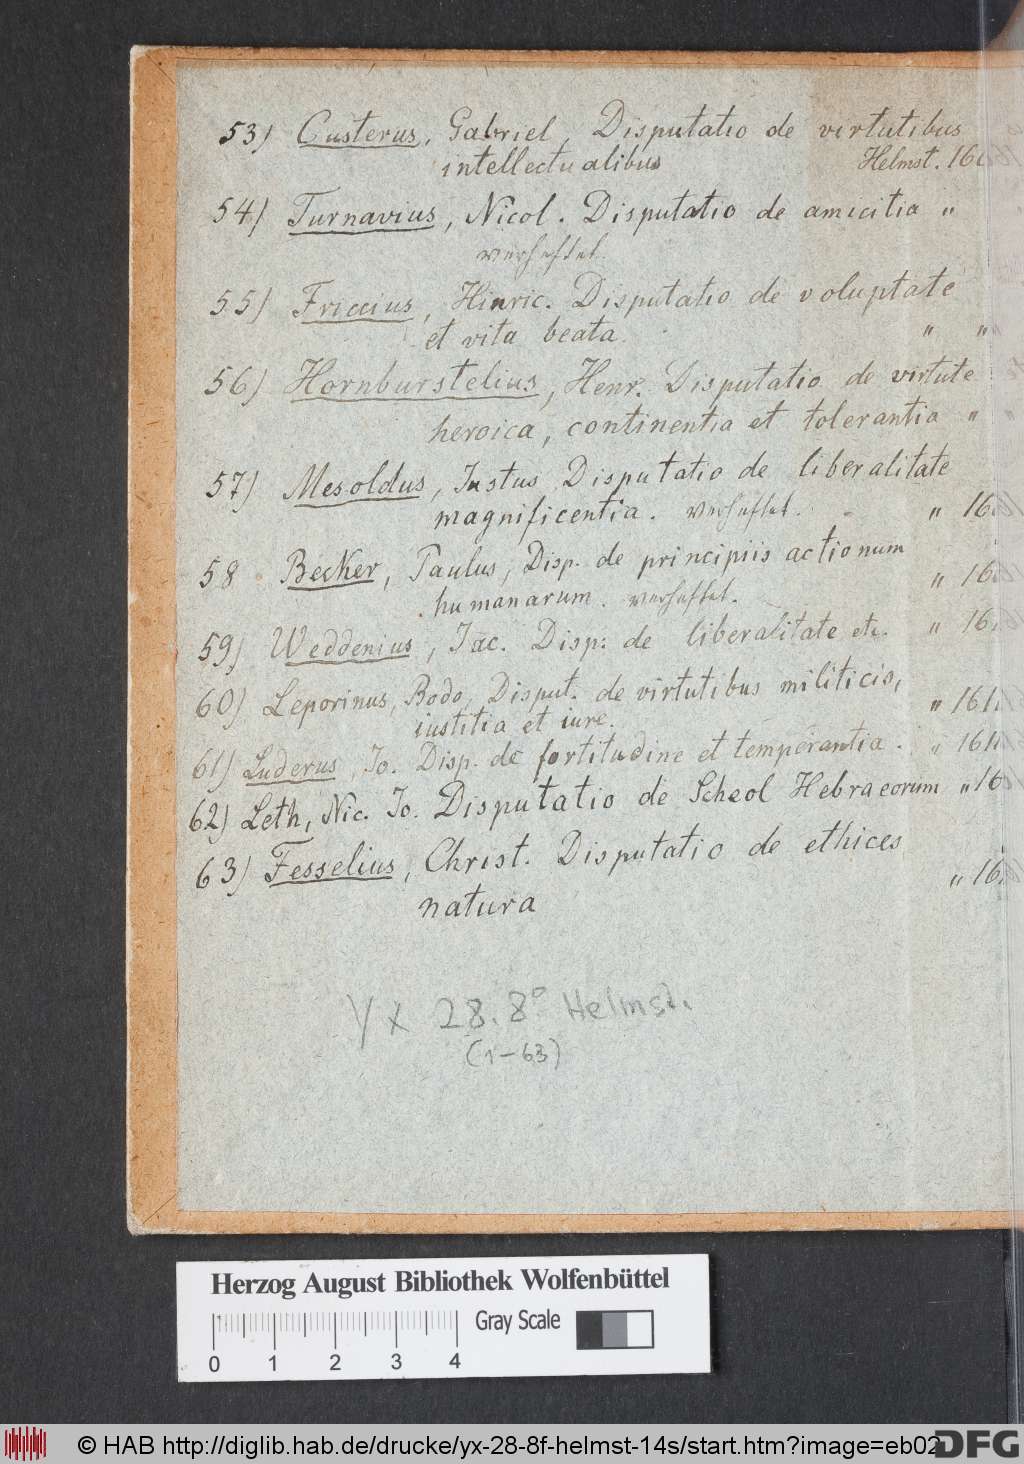 53) Custerus, Gabriel, Disputatio de virtutibus
intellectualibus Helmst. 160
54) Turnavius, Nicol. Disputatio de amicitia "
verheftet.
55) Friccius, Hinric. Disputatio de voluptate
et vita beata. " "
56) Hornburstelius, Henr. Disputatio de virtute
heroica, continentia et tolerantia "
57) Mesoldus, Justus Disputatio de liberalitate
magnificentia. verheftet. " 16
58 Becker, Paulus, Disp. de principiis actionum
humanarum. verheftet. " 16
59) Weddenius, Jac. Disp: de liberalitate etc. " 16
60) Leporinus, Bodo, Disput. de virtutibus militicis,
iustitia et iure. " 161
61) Luderus, Jo. Disp. de fortitudine et temperantia. " 161
62) Leth, Nic. Jo. Disputatio de Scheol Hebraeorum " 16
63) Fesselius, Christ. Disputatio de ethices
natura " 16
Yx 28.8° Helmst.
(1-63)
Herzog August Bibliothek Wolfenbüttel
Gray Scale
0 1 2 3 4
© HAB http://diglib.hab.de/drucke/yx-28-8f-helmst-14s/start.htm?image=eb02
DFG